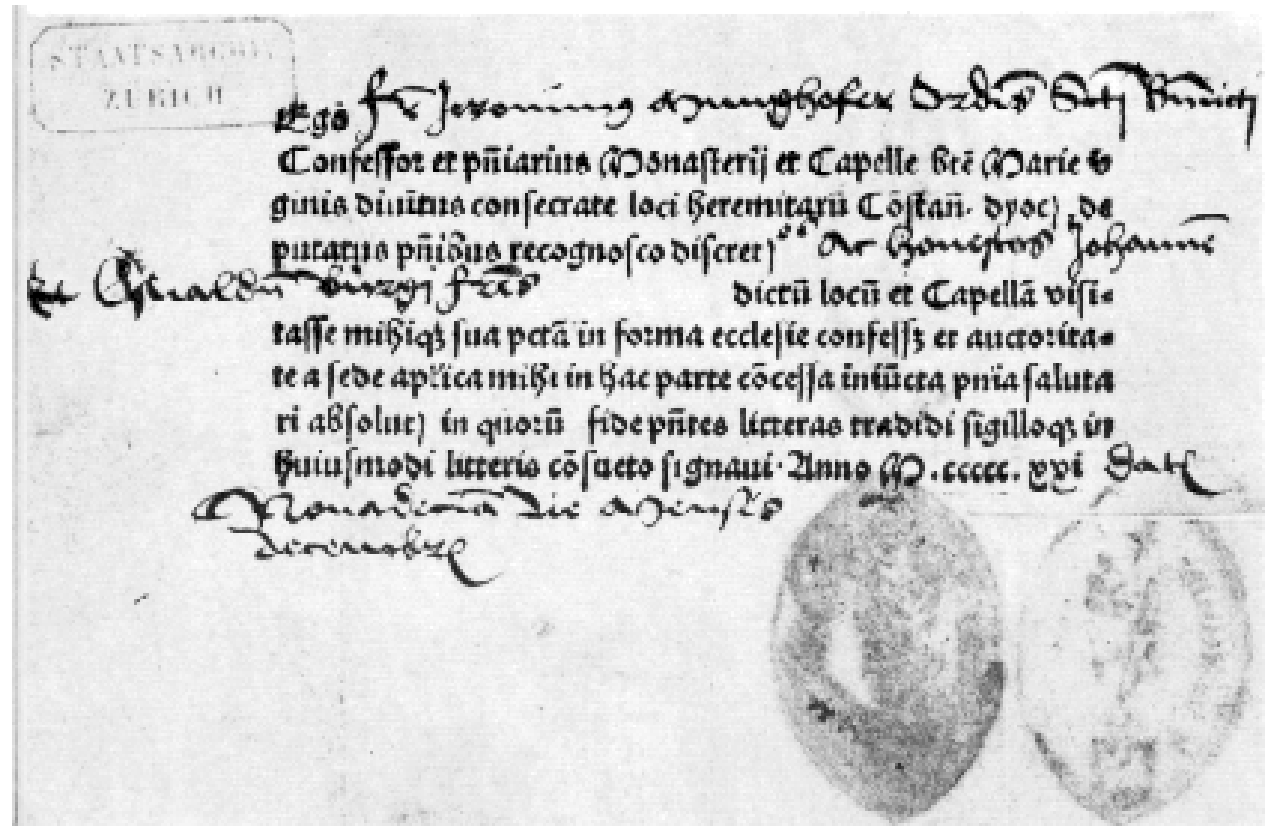 STAATSARCHIV
ZÜRICH
Ego fr̄ Jeronimus Munghofer Ordīs Scti Bn̄dicti
Confessor et pn̄iarius Monasterij et Capelle btē Marie v
ginis diuītus consecrate loci heremitarū Cōstan̄. dyoc) de
putatus pn̄ibus recognosco discret)os ac honestos Johannē
et Oswaldū bürgi frēs dictū locū et Capellā visi-
tasse mihiqꝫ sua pctā in forma ecclesie confessꝫ et auctorita-
te a sede aplica mihi in hac parte cōcessa iniūcta pnīa saluta
ri absolut) in quorū fide pn̄tes litteras tradidi sigilloqꝫ in
huiusmodi litteris cōsueto signaui. Anno M.ccccc.xxi
die Mensis